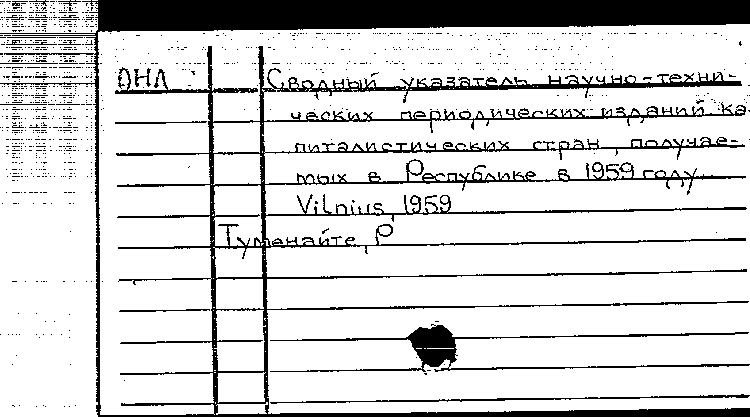 ОНЛ Сводный указатель научно-техни-
ческих периодических изданий ка
питалистических стран, получае-
мых в Республике в 1959 году
Vilnius, 1959
Туменайте, Р